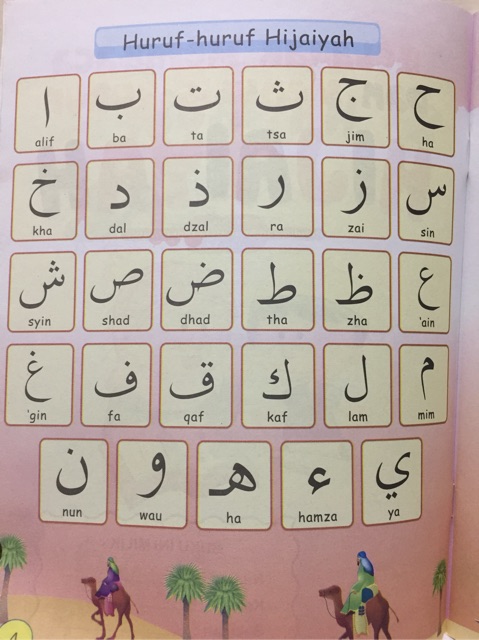 Huruf-huruf Hijaiyah
ا ب ت ث ج ح
alif ba ta tsa jim ha
خ د ذ ر ز س
kha dal dzal ra zai sin
ش ص ض ط ظ ع
syin shad dhad tha zha 'ain
غ ف ق ك ل م
'gin fa qaf kaf lam mim
ن و هـ ء ي
nun wau ha hamza ya